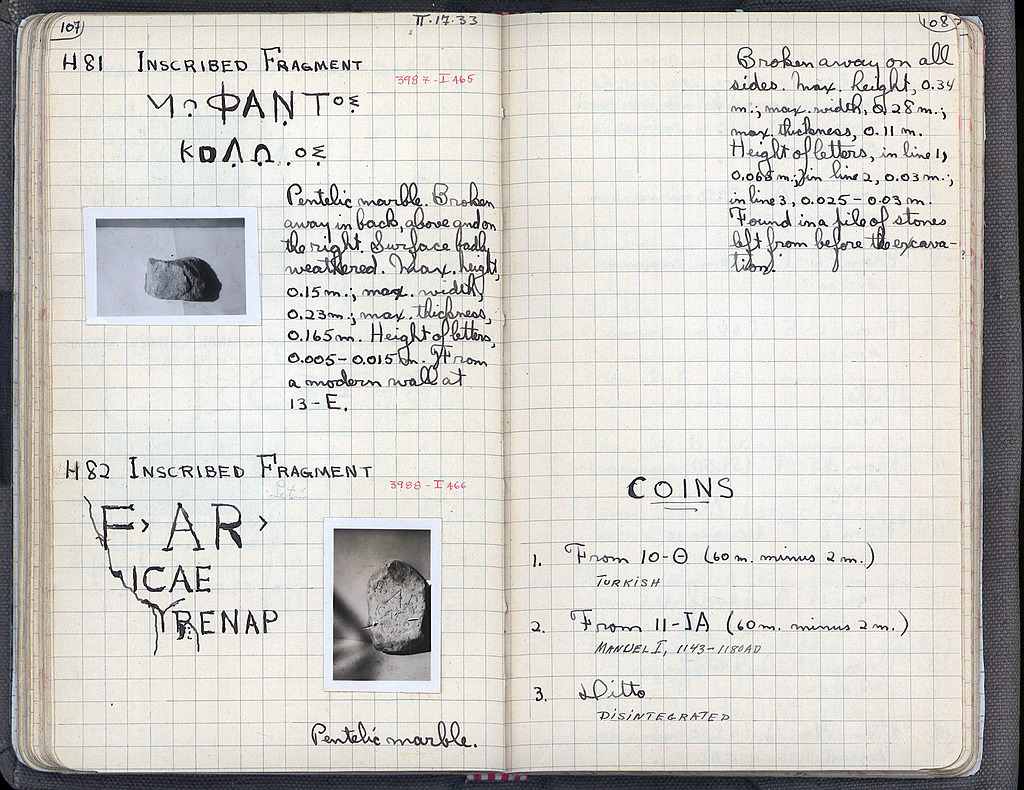 107
Π·17·33
H81 INSCRIBED FRAGMENT
3987-I 465
ΦΑΝΤΟΣ
ΚΟΛΩ..ΟΣ
Pentelic marble. Broken
away in back, above and on
the right. Surface badly
weathered. Max. height,
0.15 m.; max. width,
0.23 m.; max. thickness,
0.165 m. Height of letters,
0.005-0.015 m. From
a modern wall at
13-E.
H82 INSCRIBED FRAGMENT
3988-I 466
F > AR >
ICAE
RENAP
Pentelic marble.
108
Broken away on all
sides. Max. height, 0.34
m.; max. width, 0.28 m.;
max. thickness, 0.11 m.
Height of letters, in line 1,
0.065 m.; in line 2, 0.03 m.;
in line 3, 0.025-0.03 m.
Found in a pile of stones
left from before the excava-
tion.
COINS
1. From 10-Θ (60 m. minus 2 m.)
TURKISH
2. From 11-ΙΑ (60 m. minus 2 m.)
MANUEL I, 1143-1180 AD
3. Ditto
DISINTEGRATED